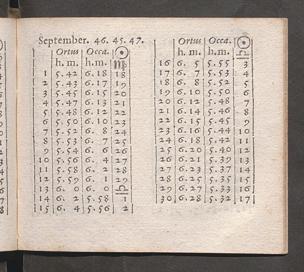 September. 46. 45. 47.
Ortus Occa. ☉
h. m. h. m. ♍
1 5.42 6.18 18
2 5.43 6.17 19
3 5.45 6.15 20
4 5.47 6.13 21
5 5.48 6.12 22
6 5.50 6.10 23
7 5.52 6. 8 24
8 5.53 6. 7 25
9 5.54 6. 6 26
10 5.56 6. 4 27
11 5.58 6. 2 28
12 5.59 6. 1 29
13 6. 0 6. 0 ♎
14 6. 2 5.58 1
15 6. 4 5.56 2
Ortus Occa. ☉
h. m. h. m. ♎
16 6. 5 5.55 3
17 6. 7 5.53 4
18 6. 8 5.52 5
19 6.10 5.50 6
20 6.12 5.48 7
21 6.14 5.46 8
22 6.15 5.45 9
23 6.16 5.44 10
24 6.18 5.42 11
25 6.20 5.40 12
26 6.21 5.39 13
27 6.23 5.37 14
28 6.25 5.35 15
29 6.27 5.33 16
30 6.28 5.32 17